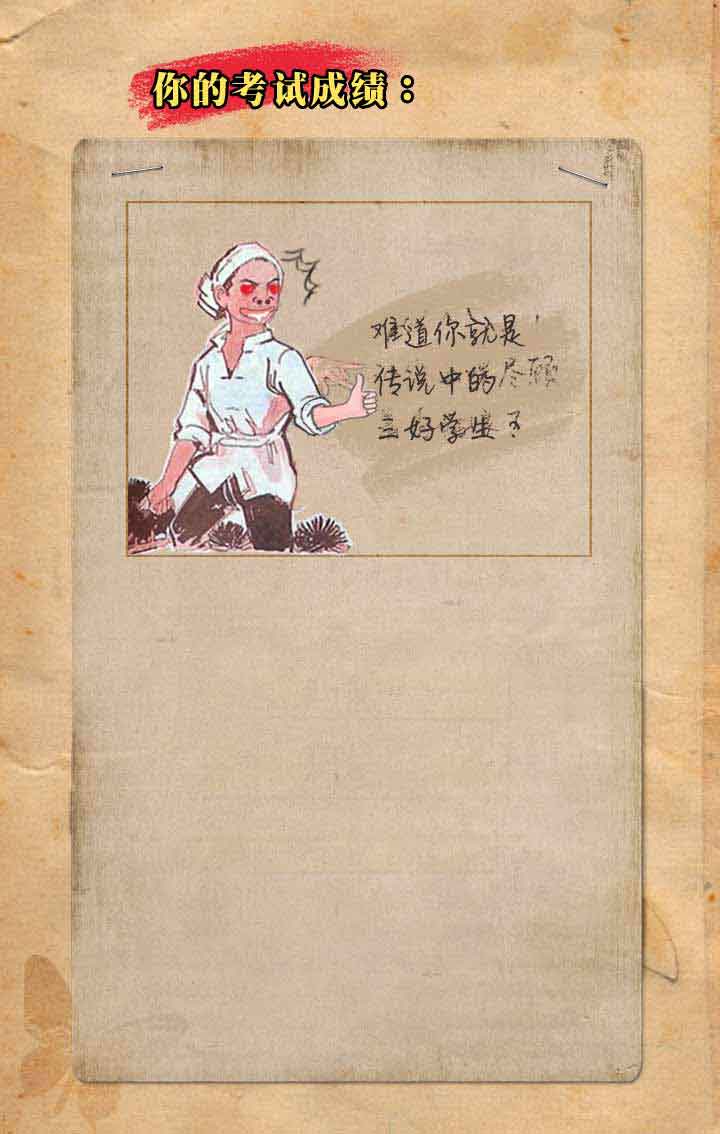 你的考试成绩：
难道你就是
传说中的
三好学生